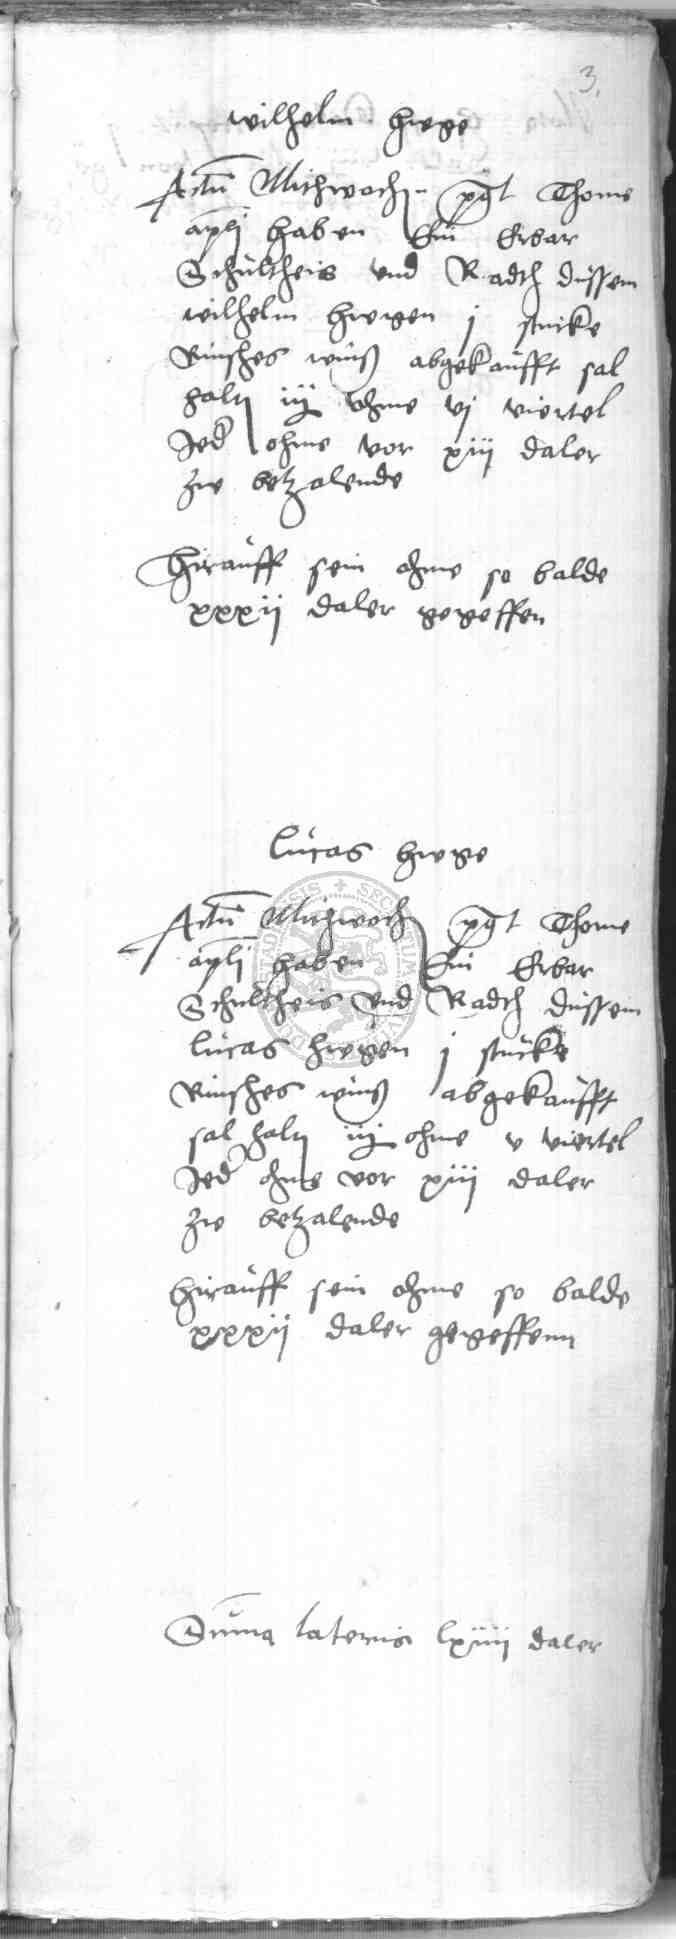 3.
wilhelm hege
Actu Mithwoch pgt Thome
apli haben Ein Erbar
Schultheis und Radth dussem
wilhelm hegen j stucke
Rinshes wins abgekaufft sal
halt iij ohme vj viertel
Jed ohme vor xiij daler
zu betzalende
hirauff sein ohme so balde
xxxij daler gegeffen
lucas hege
Actu Mithwoch pgt Thome
apli haben Ein Erbar
Schultheis und Radth dussem
lucas hegen j stucke
Rinshes wins abgekaufft
sal halt iij ohme v viertel
Jed ohme vor xiij daler
zu betzalende
hirauff sein ohme so balde
xxxij daler gegeffenn
Suma lateris lxiiij daler